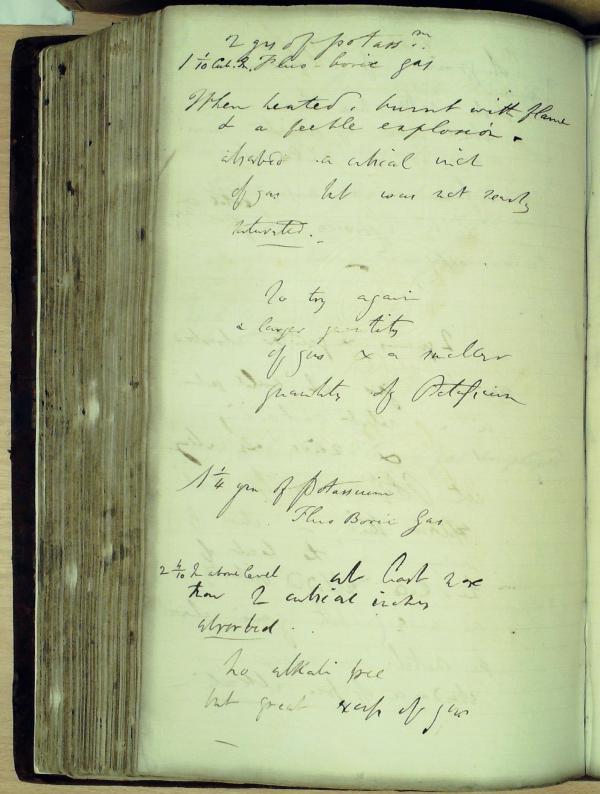 2 grs of potassm.
1 1/10 Cub. In. Fluo-boric gas
When heated, burnt with flame
& a feeble explosion.
absorbed a cubical inch
of gas but was not nearly
saturated.
To try again
a larger quantity
of gas & a smaller
quantity of Potassium
1 1/4 grn of Potassium
Fluo Boric Gas
2 4/10 In above level at least more
than 2 cubical inches
absorbed.
No alkali free
but great excess of gas